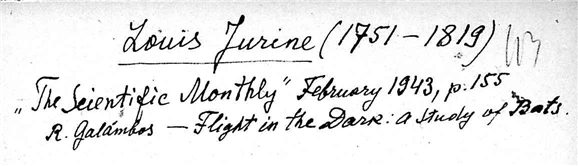 Louis Jurine (1751–1819) 113
„The Scientific Monthly" February 1943, p. 155
R. Galámbos — Flight in the Dark: a Study of Bats.